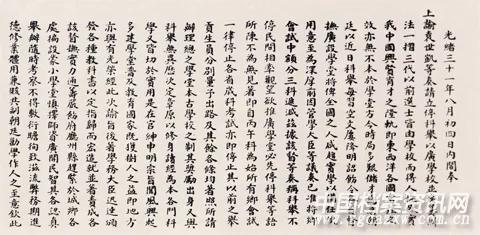 光緒三十一年八月初四日內閣奉
上諭袁世凱等奏請立停科舉以廣學校並妥籌辦
法一摺三代以前選士皆由學校而得人極盛實
我中國興賢育才之隆軌即東西洋各國富強之
效亦無不本於學堂方今時局多艱儲才為急朝
廷以近日科舉每習空文屢降明詔飭令各督
撫廣設學堂將俾全國之人咸趨實學以備任使
用意至為深厚前因管學大臣等議奏已准將鄉
會試中額分三科遞減茲據該督等奏稱科舉不
停民間相率觀望欲推廣學堂必先停科舉等語
所陳不為無見著即自丙午科為始所有鄉會試
一律停止各省歲科考試亦即停止其以前之舉
貢生員分別量予出路及其餘各條均著照所請
辦理總之學堂本古學校之制其獎勵出身又與
科舉無異歷次定章原以修身讀經為本各門科
學又皆切於實用是在官紳申明宗旨聞風興起
多建學堂普及教育國家既獲樹人之益即地方
亦與有光榮經此次諭旨後著學務大臣迅速頒
發各種教科書以定指歸而宏造就並著責成各
該督撫實力通籌嚴飭府廳州縣趕緊於城鄉各
處徧設蒙小學堂慎擇師資廣開民智其各認真
舉辦隨時考察不得敷衍瞻徇致滋流弊務期進
德修業體用兼賅共副朝廷勸學作人之至意欽此
中国档案资讯网